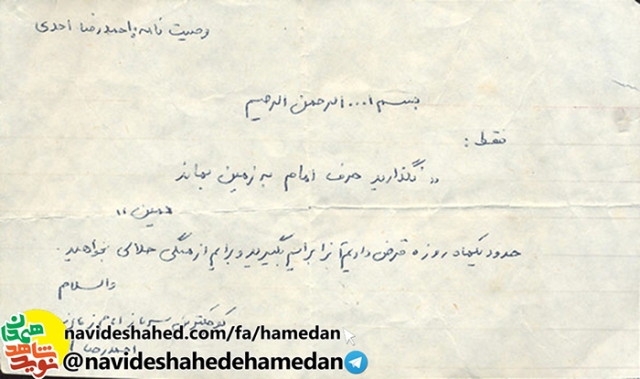 وصیت نامه احمدرضا احدی
بسم ا... الرحمن الرحیم
فقط :
" نگذارید حرف امام به زمین بماند
همین "
حدود یکماه روزه قرض دارم آنرا برایم بگیرید و برایم از همگی حلالی بخواهید .
والسلام
کوچکترین سرباز امام زمان
احمدرضا
navideshahed.com/fa/hamedan
@navideshahedehamedan
نوید شاهد همدان